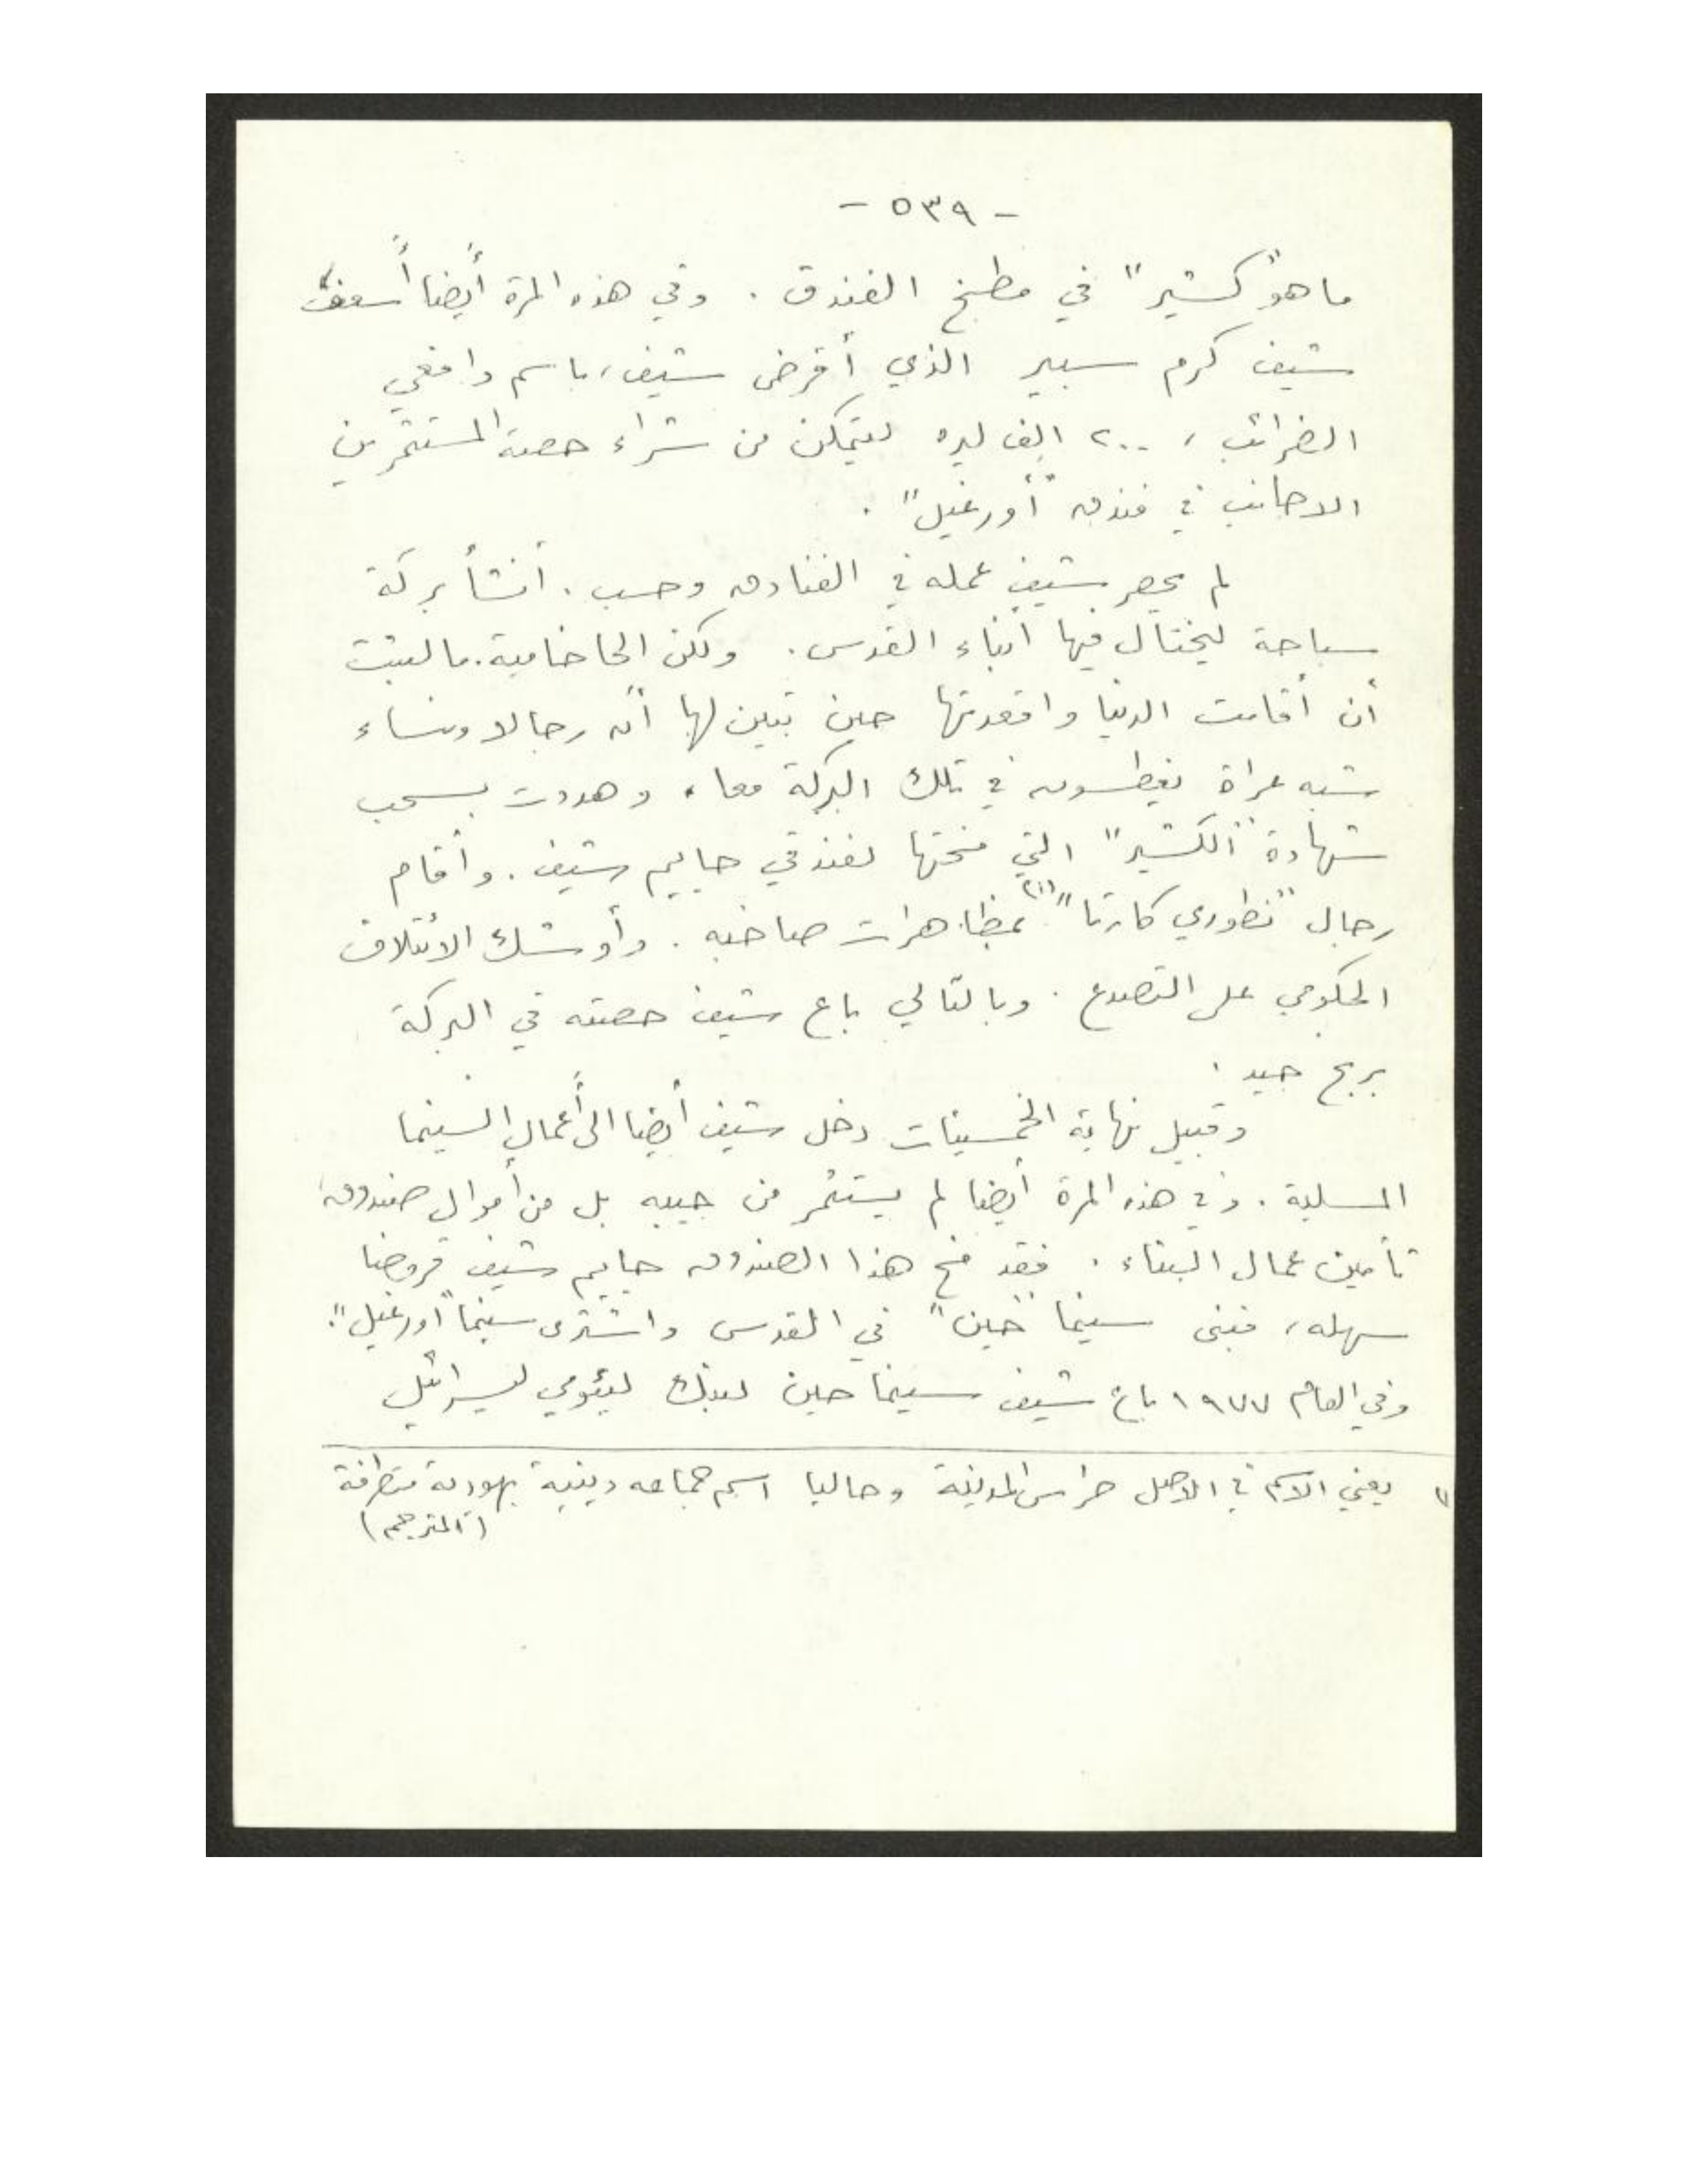 - ٥٣٩ -
ما هو "كشير" في مطبخ الفندق . وفي هذه المرة أيضاً أسعف
شيف كرم سبير الذي أقرض شيف، باسم دافعي
الضرائب، ٢٠٠ الف ليره ليتمكن من شراء حصة المستثمرين
الاجانب في فندق "أورغيل" .
لم يحصر شيف عمله في الفنادق وحسب . أنشأ بركة
سباحة ليختال فيها أبناء القدس . ولكن الحاخامية ما لبثت
أن أقامت الدنيا واقعدتها حين تبين لها أن رجالا ونساء
شبه عراة يغطسون في تلك البركة معا، وهددت بسحب
شهادة "الكشير" التي منحتها لفندقي حاييم شيف . وأقام
رجال "نطوري كارتا" (١) بمظاهرات صاخبه . وأوشك الائتلاف
الحكومي على التصدع . وبالتالي باع شيف حصته في البركة
بربح جيد .
وقبيل نهاية الخمسينات دخل شيف أيضاً الى أعمال السينما
المسلية . وفي هذه المرة أيضا لم يستثمر من جيبه بل من أموال صندوق
تأمين عمال البناء . فقد منح هذا الصندوق حاييم شيف قروضا
سهله، فبنى سينما "حين" في القدس واشترى سينما "أورغيل".
وفي العام ١٩٧٧ باع شيف سينما حين لبنك ليئومي ليسرائيل
١) يعني الاسم في الاصل حراس المدينة وحاليا اسم جماعه دينية يهودية متطرفة
(المترجم)